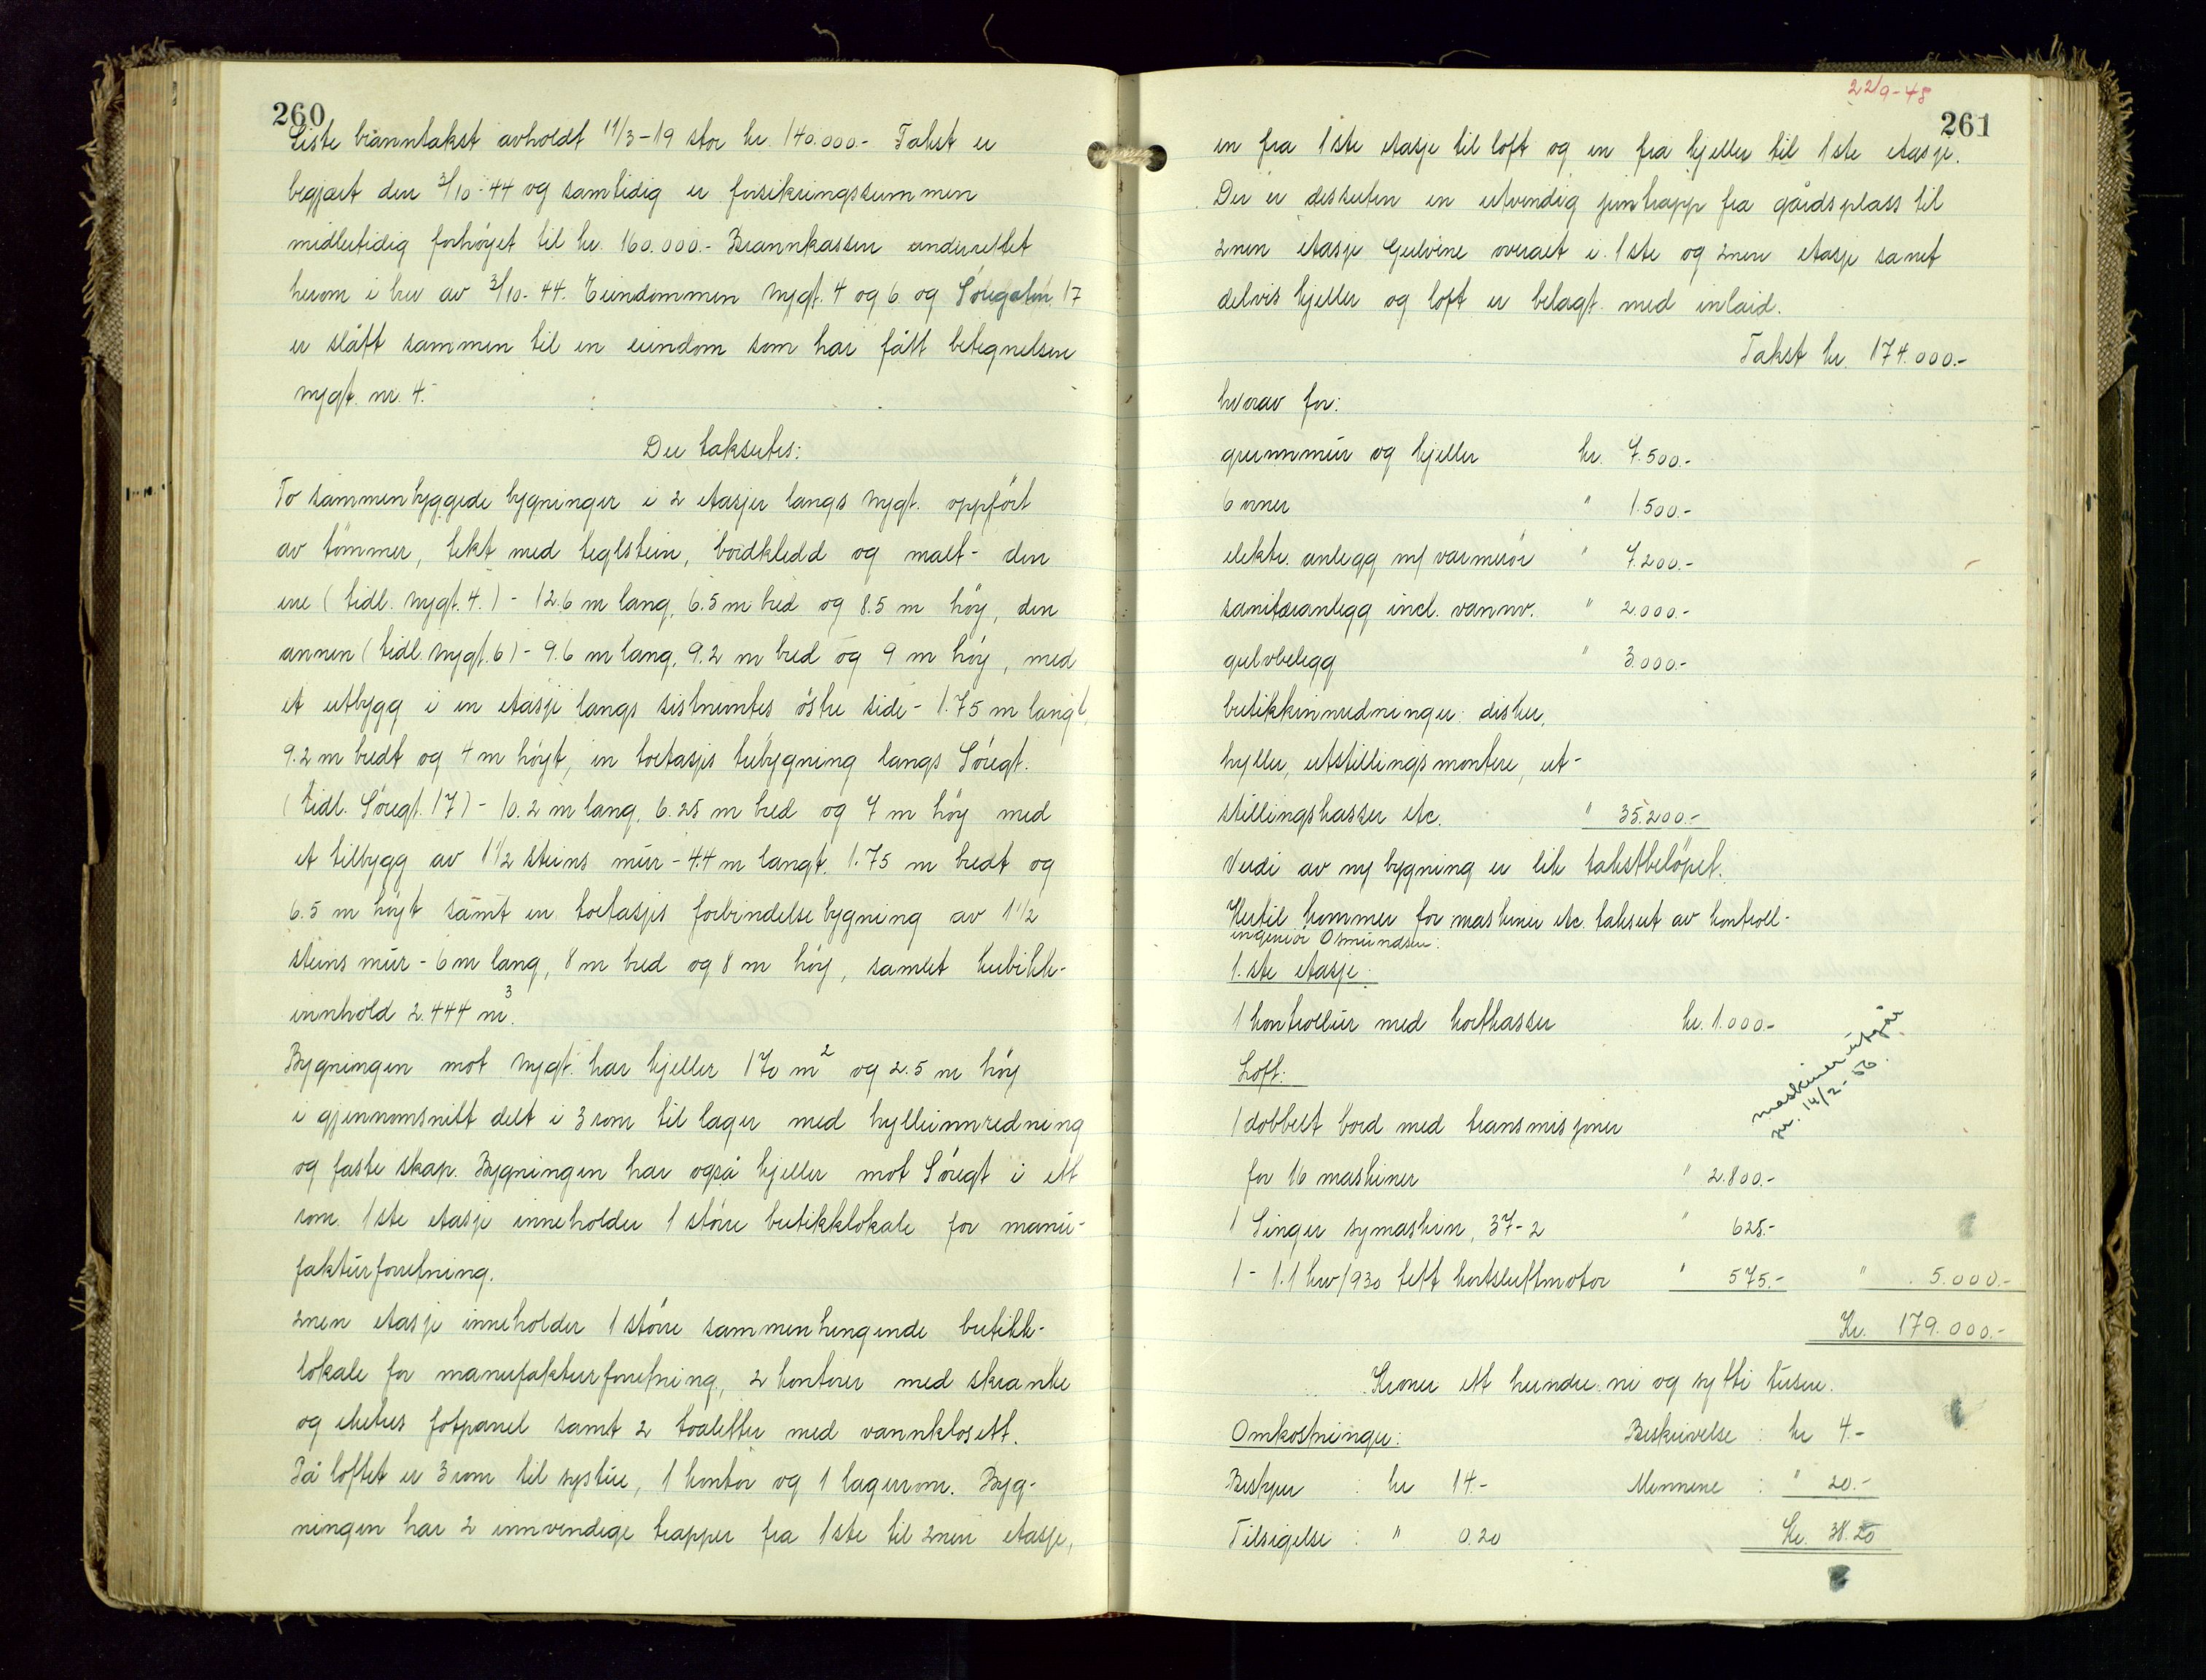 260
Siste branntakst avholdt 11/3-19 stor kr. 140.000.- Takst er
begjært den 3/10-44 og samtidig er forsikringssummen
midlertidig forhöyet til kr. 160.000.- Brannkassen underrettet
herom i brev av 3/10-44. Eiendommen Nygt. 4 og 6 og Söregaten 17
er slått sammen til en eiendom som har fått betegnelsen
Nygt. nr. 4.-
Der takseres:
To sammenbyggede bygninger i 2 etasjer langs Nygt. oppfört
av tömmer, tekt med teglstein, bordkledd og malt - den
ene (tidl. Nygt. 4.) - 12.6 m lang, 6.5 m bred og 8.5 m höy, den
annen (tidl. Nygt. 6) - 9.6 m lang, 9.2 m bred og 9 m höy, med
et utbygg i en etasje langs sistnevntes östre side - 1.75 m langt,
9.2 m bredt og 4 m höyt, en toetasjes trebygning langs Söregt.
(tidl. Söregt. 17) - 10.2 m lang, 6.25 m bred og 7 m höy med
et tilbygg av 1 1/2 steins mur - 4.4 m langt. 1.75 m bredt og
6.5 m höyt samt en toetasjes forbindelsebygning av 1 1/2
steins mur - 6 m lang, 8 m bred og 8 m höy, samlet kubikk-
innhold 2.444 m³.
Bygningen mot Nygt. har kjeller 170 m² og 2.5 m höy
i gjennomsnitt delt i 3 rom til lager med hylleinnredning
og faste skap. Bygningen har også kjeller mot Söregt i ett
rom. 1ste etasje inneholder 1 större butikklokale for manu-
fakturforretning.
2nen etasje inneholder 1 större sammenhengende butikk-
lokale for manufakturforretning, 2 kontorer med skranke
og ekekes fotpanel samt 2 toaletter med vannklosett.
På loftet er 3 rom til systue, 1 kontor og 1 lagerrom. Byg-
ningen har 2 innvendige trapper fra 1ste til 2nen etasje,
22/9-48
261
en fra 1ste etasje til loft og en fra kjeller til 1ste etasje.
Der er dessuten en utvendig jerntrapp fra gårdsplass til
2nen etasje Gulvene overalt i 1ste og 2nen etasje samt
delvis kjeller og loft er belagt med inlaid.
Takst kr. 174.000.-
hvorav for:
grunnmur og kjeller kr. 7.500.-
6 ovner " 1.500.-
elektr. anlegg m/ varmerör " 7.200.-
sanitæranlegg incl. vannv. " 2.000.-
gulvbelegg " 3.000.-
butikkinnredninger: disker,
hyller, utstillingsmontere, ut-
stillingskasser etc. " 35.200.-
Verdi av ny bygning er lik takstbelöpet.
Hertil kommer for maskiner etc. taksert av kontroll-
ingeniör Osmundsen:
1.ste etasje:
1 kontrollur med kortkasser kr. 1.000.-
Loft:
maskiner utgår
pr. 14/2-56.
1 dobbelt bord med transmisjoner
for 16 maskiner " 2.800.-
1 Singer symaskin, 37-2 " 625.-
1 - 1.1 kw/930 tett kortsluttmotor " 575.- " 5.000.-
Kr. 179.000.-
Kroner ett hundre ni og sytti tusen.
Omkostninger: Beskrivelse : kr 4.-
Bestyrer : kr 14.- Mennene : " 20.-
Tilsigelse : " 0.20 Kr. 38.20